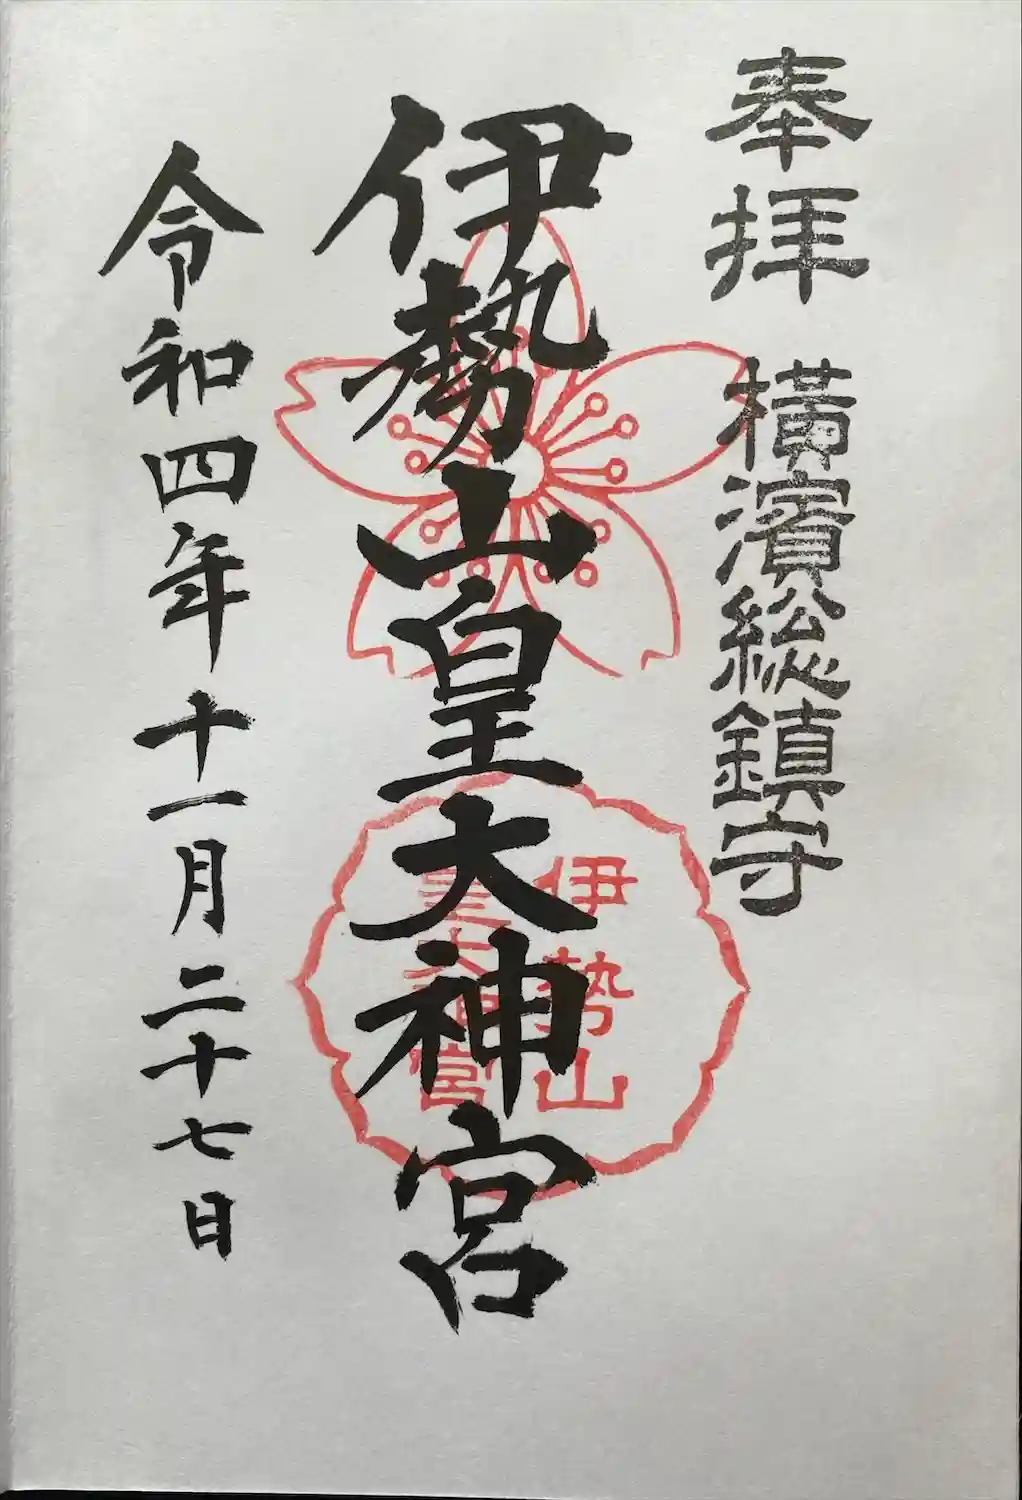 奉拝
横濱総鎮守
伊勢山皇大神宮
伊勢山
皇大神宮
令和四年十一月二十七日